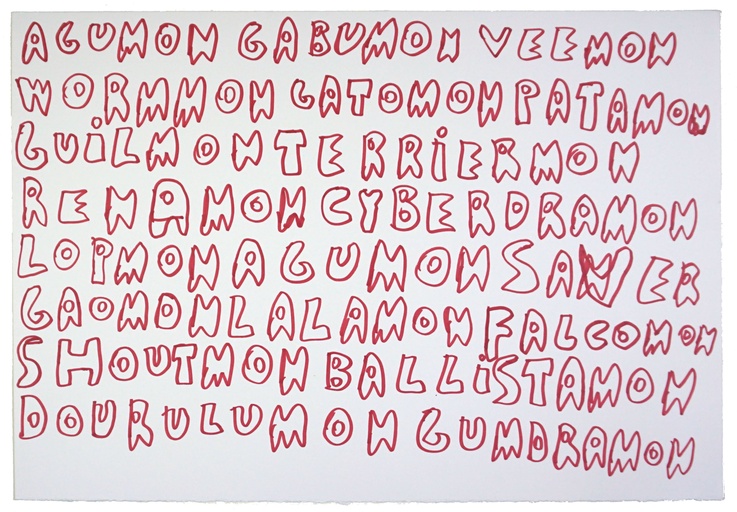 AGUMON GABUMON VEEMON
WORMMON GATOMON PATAMON
GUiLMON TERRiERMON
RENAMON CYBERDRAMON
LOPMON AGUMON SAVER
GAOMONLALAMON FALCOMON
SHOUTMON BALLiSTAMON
DOURULUMON GUMDRAMON